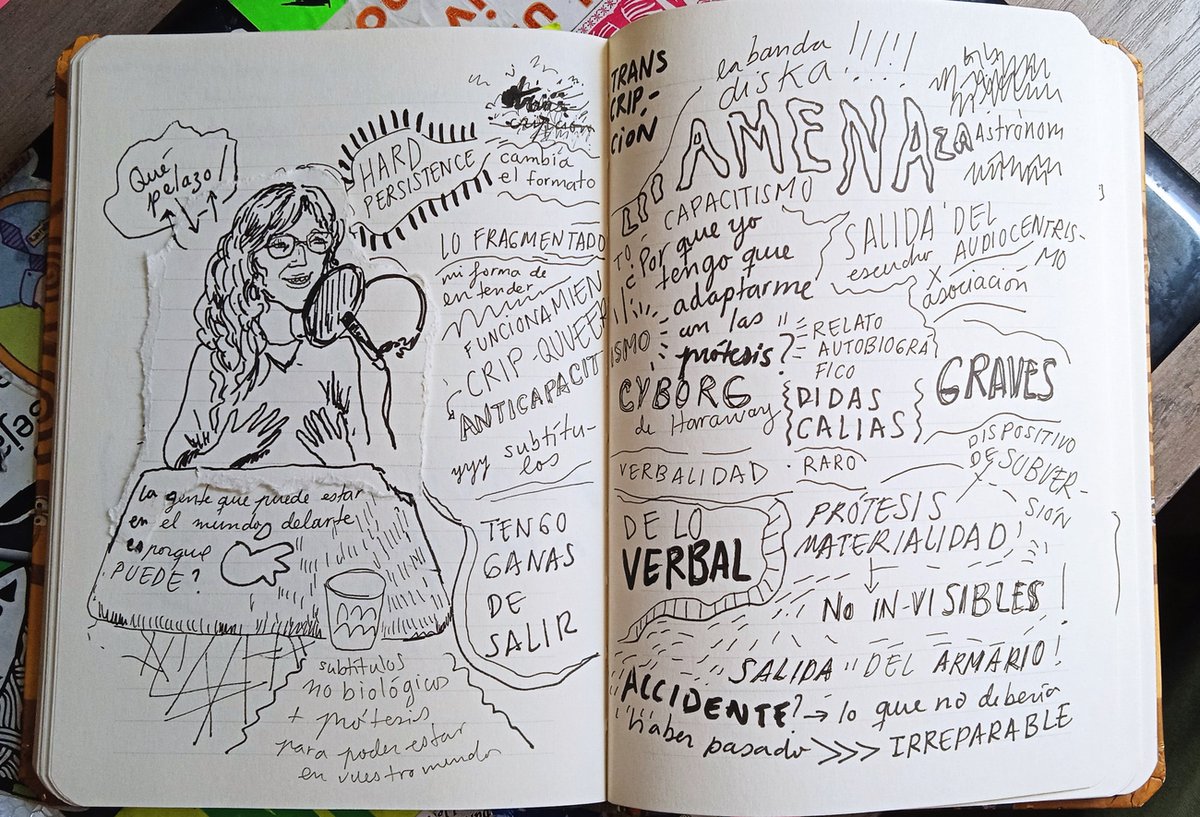 Qué
pelazo!
HARD
PERSISTENCE
cambia
el formato
LO FRAGMENTADO
mi forma de
entender
FUNCIONAMIEN
CRIP-QUEER
ANTICAPACIT
yyy subtítu-
los
TENGO
GANAS
DE
SALIR
la gente que puede estar
en el mundo delarte
es porque
PUEDE?
subtitulos
no biológicos
+ prótesis
para poder estar
en vuestro mundo
TRANS
CRIP-
CIÓN
la banda
diska !!!!!
AMENAZA
Astrónom
CAPACITISMO
TO
¿Por que yo
tengo que
adaptarme
con las
prótesis?
ISMO
SALIDA DEL
escucho AUDIOCENTRIS-
MO
X
asociación
RELATO
AUTOBIOGRÁ
FICO
CYBORG
de Harraway
DIDAS
CALIAS
GRAVES
VERBALIDAD
RARO
DISPOSITIVO
DE SUBVER-
SIÓN
DE LO
VERBAL
PRÓTESIS
MATERIALIDAD
NO IN-VISIBLES!
SALIDA" DEL ARMARIO!
ACCIDENTE? → lo que no debería
haber pasado >>> IRREPARABLE